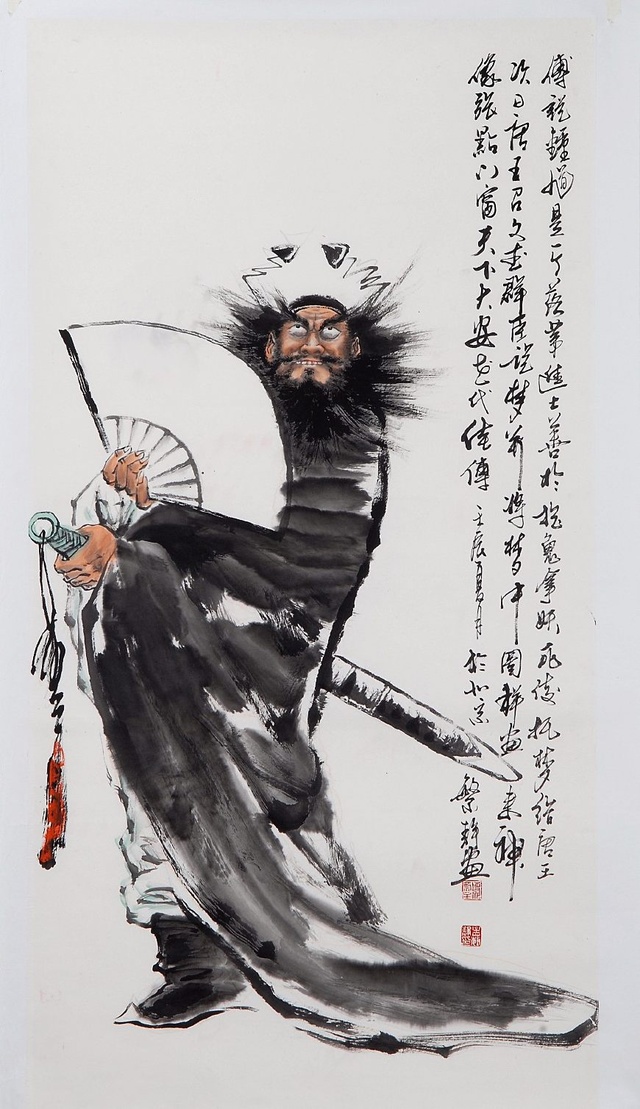 傳說鍾馗是一个落第進士善於捉鬼拿妖死後托夢給唐王
次日唐王召文武群臣說夢并將夢中圖樣畫来神
像張點门富天下大安世代佳傳 壬辰夏月於北京
繁静畫